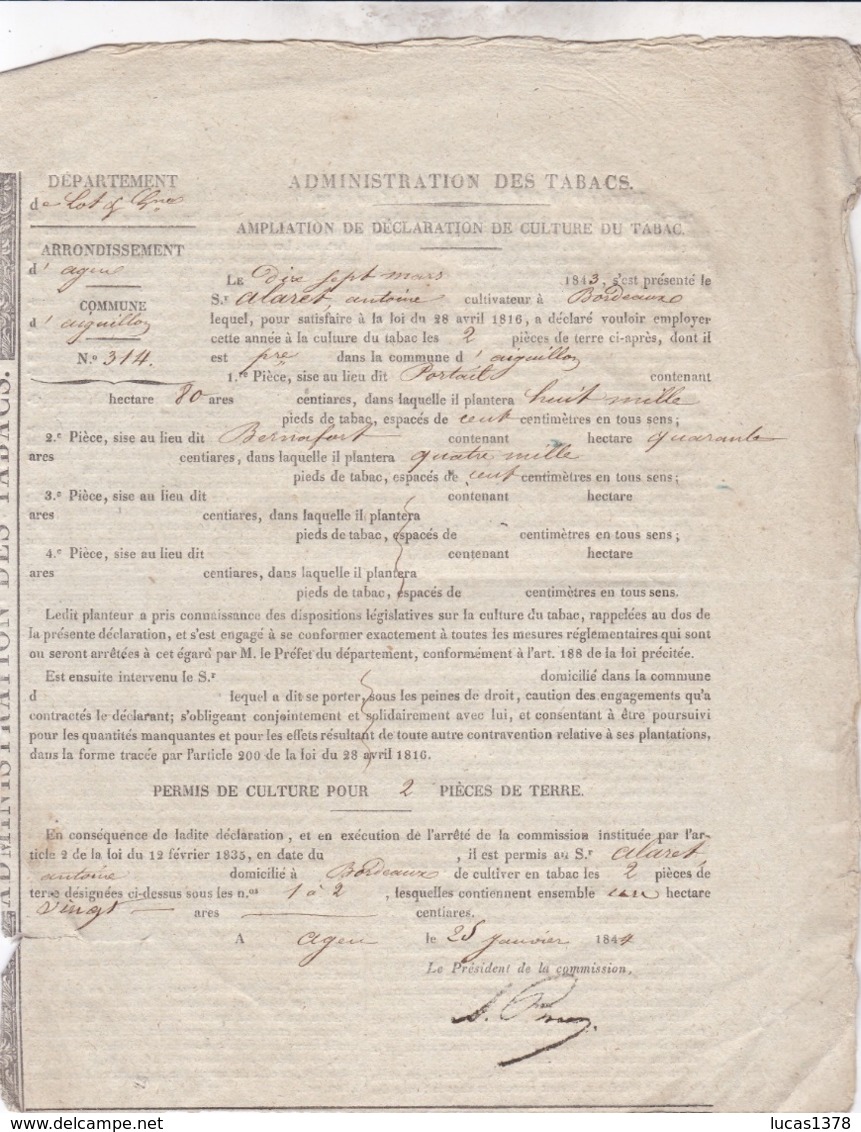 DÉPARTEMENT
de Lot & Gne
ARRONDISSEMENT
d' agen
COMMUNE
d' aiguillon
N.º 314.
ADMINISTRATION DES TABACS.
AMPLIATION DE DÉCLARATION DE CULTURE DU TABAC.
LE Dix sept mars 1843, s'est présenté le
S.r alaret, antoine cultivateur à Bordeaux
lequel, pour satisfaire à la loi du 28 avril 1816, a déclaré vouloir employer
cette année à la culture du tabac les 2 pièces de terre ci-après, dont il
est pre dans la commune d' aiguillon
1.re Pièce, sise au lieu dit Portail contenant
hectare 80 ares centiares, dans laquelle il plantera huit mille
pieds de tabac, espacés de cent centimètres en tous sens;
2.e Pièce, sise au lieu dit Bernafort contenant hectare quarante
ares centiares, dans laquelle il plantera quatre mille
pieds de tabac, espacés de cent centimètres en tous sens;
3.e Pièce, sise au lieu dit contenant hectare
ares centiares, dans laquelle il plantera
pieds de tabac, espacés de centimètres en tous sens;
4.e Pièce, sise au lieu dit contenant hectare
ares centiares, dans laquelle il plantera
pieds de tabac, espacés de centimètres en tous sens.
Ledit planteur a pris connaissance des dispositions législatives sur la culture du tabac, rappelées au dos de
la présente déclaration, et s'est engagé à se conformer exactement à toutes les mesures réglementaires qui sont
ou seront arrêtées à cet égard par M. le Préfet du département, conformément à l'art. 188 de la loi précitée.
Est ensuite intervenu le S.r domicilié dans la commune
d lequel a dit se porter, sous les peines de droit, caution des engagements qu'a
contractés le déclarant; s'obligeant conjointement et solidairement avec lui, et consentant à être poursuivi
pour les quantités manquantes et pour les effets résultant de toute autre contravention relative à ses plantations,
dans la forme tracée par l'article 200 de la loi du 28 avril 1816.
PERMIS DE CULTURE POUR 2 PIÈCES DE TERRE.
En conséquence de ladite déclaration, et en exécution de l'arrêté de la commission instituée par l'ar-
ticle 2 de la loi du 12 février 1835, en date du , il est permis au S.r alaret,
antoine domicilié à Bordeaux de cultiver en tabac les 2 pièces de
terre désignées ci-dessus sous les n.os 1 à 2, lesquelles contiennent ensemble un hectare
vingt ares centiares.
A agen le 25 janvier 1844
Le Président de la commission,
ADMINISTRATION DES TABACS.
lucas1378